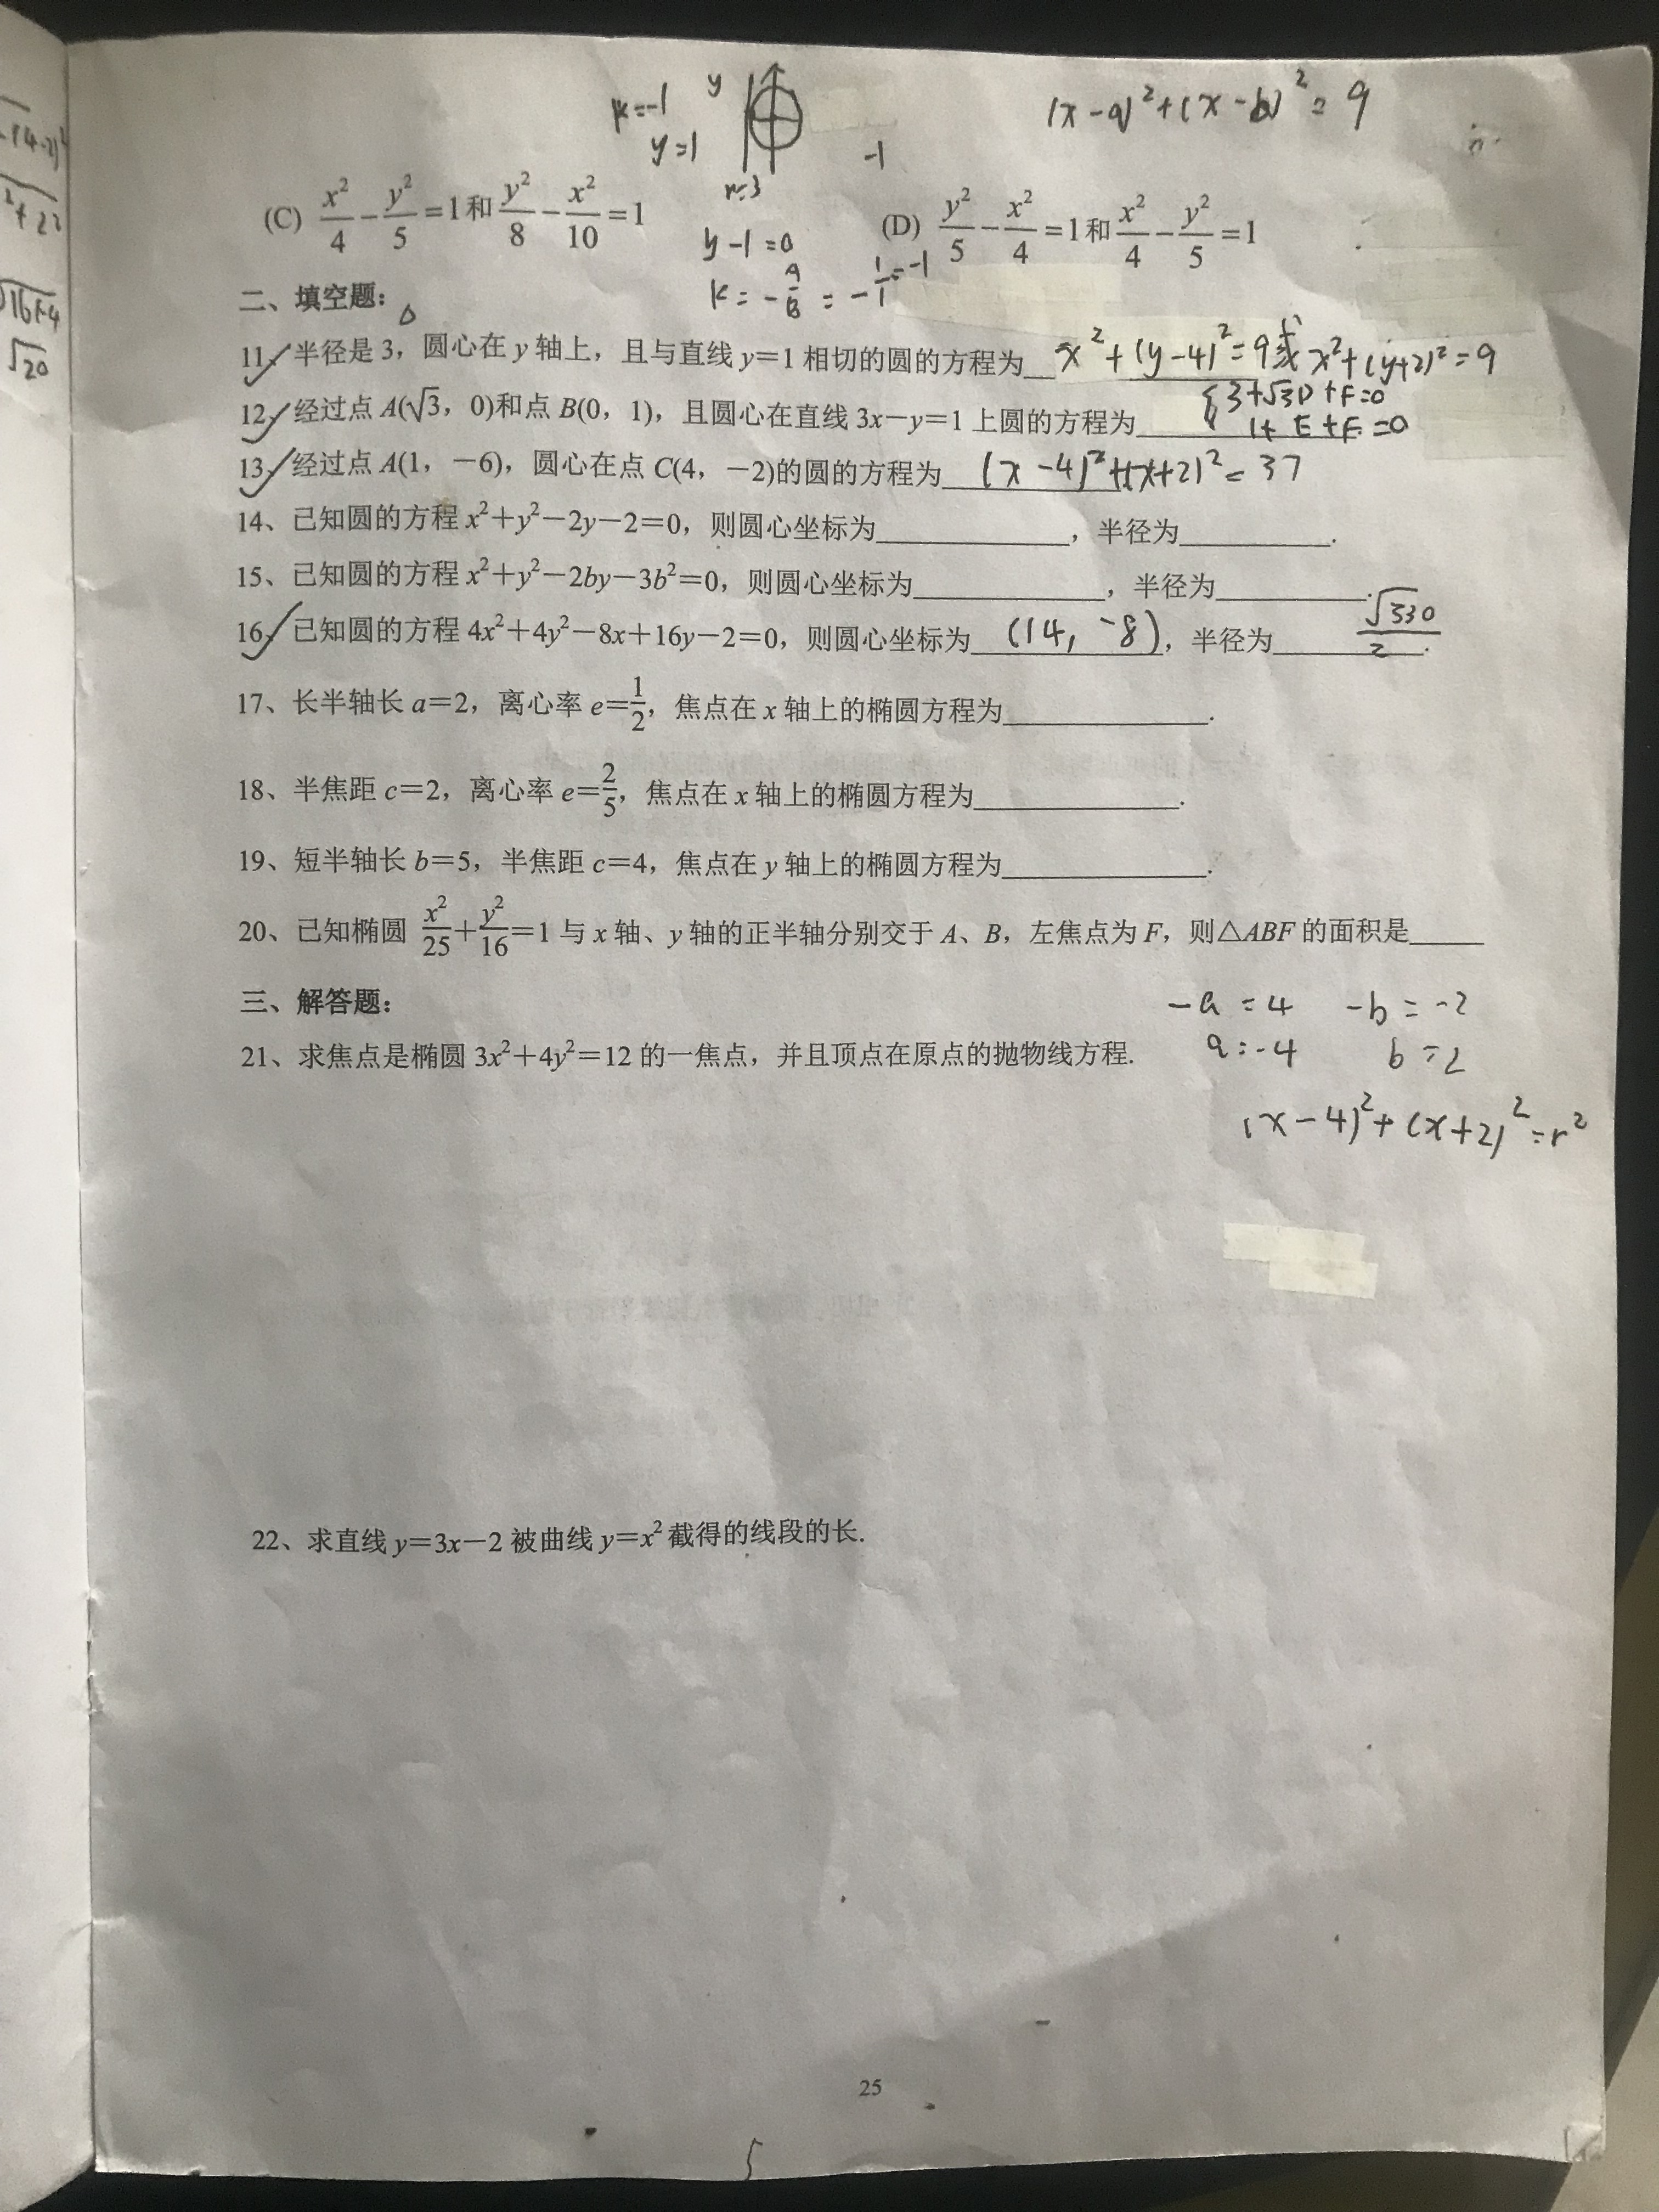 k=-1
y
(x-a)²+(x-b)²=9
y=1
-1
r=3
(C) x²/4 - y²/5 =1和 y²/8 - x²/10 =1
(D) y²/5 - x²/4 =1和 x²/4 - y²/5 =1
y-1=0
k=-A/B=-1/1=-1
二、填空题:
11、半径是 3，圆心在 y 轴上，且与直线 y=1 相切的圆的方程为 x²+(y-4)²=9或 x²+(y+2)²=9
{3+√3D+F=0
12、经过点 A(√3，0)和点 B(0，1)，且圆心在直线 3x-y=1 上圆的方程为 1+E+F=0
13、经过点 A(1，-6)，圆心在点 C(4，-2)的圆的方程为 (x-4)²+(x+2)²=37
14、已知圆的方程 x²+y²-2y-2=0，则圆心坐标为____，半径为____.
15、已知圆的方程 x²+y²-2by-3b²=0，则圆心坐标为____，半径为____.
16、已知圆的方程 4x²+4y²-8x+16y-2=0，则圆心坐标为 (14, -8)，半径为 √330/2.
17、长半轴长 a=2，离心率 e=1/2，焦点在 x 轴上的椭圆方程为____.
18、半焦距 c=2，离心率 e=2/5，焦点在 x 轴上的椭圆方程为____.
19、短半轴长 b=5，半焦距 c=4，焦点在 y 轴上的椭圆方程为____.
20、已知椭圆 x²/25+y²/16=1 与 x 轴、y 轴的正半轴分别交于 A、B，左焦点为 F，则△ABF 的面积是____
三、解答题:
-a=4 -b=-2
21、求焦点是椭圆 3x²+4y²=12 的一焦点，并且顶点在原点的抛物线方程.
a=-4 b=2
(x-4)²+(x+2)²=r²
22、求直线 y=3x-2 被曲线 y=x² 截得的线段的长.
25